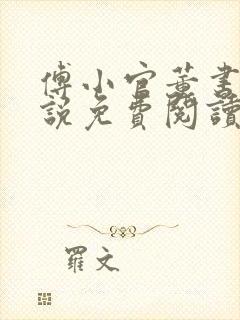 傅小官董書
說免費閱讀
羅文